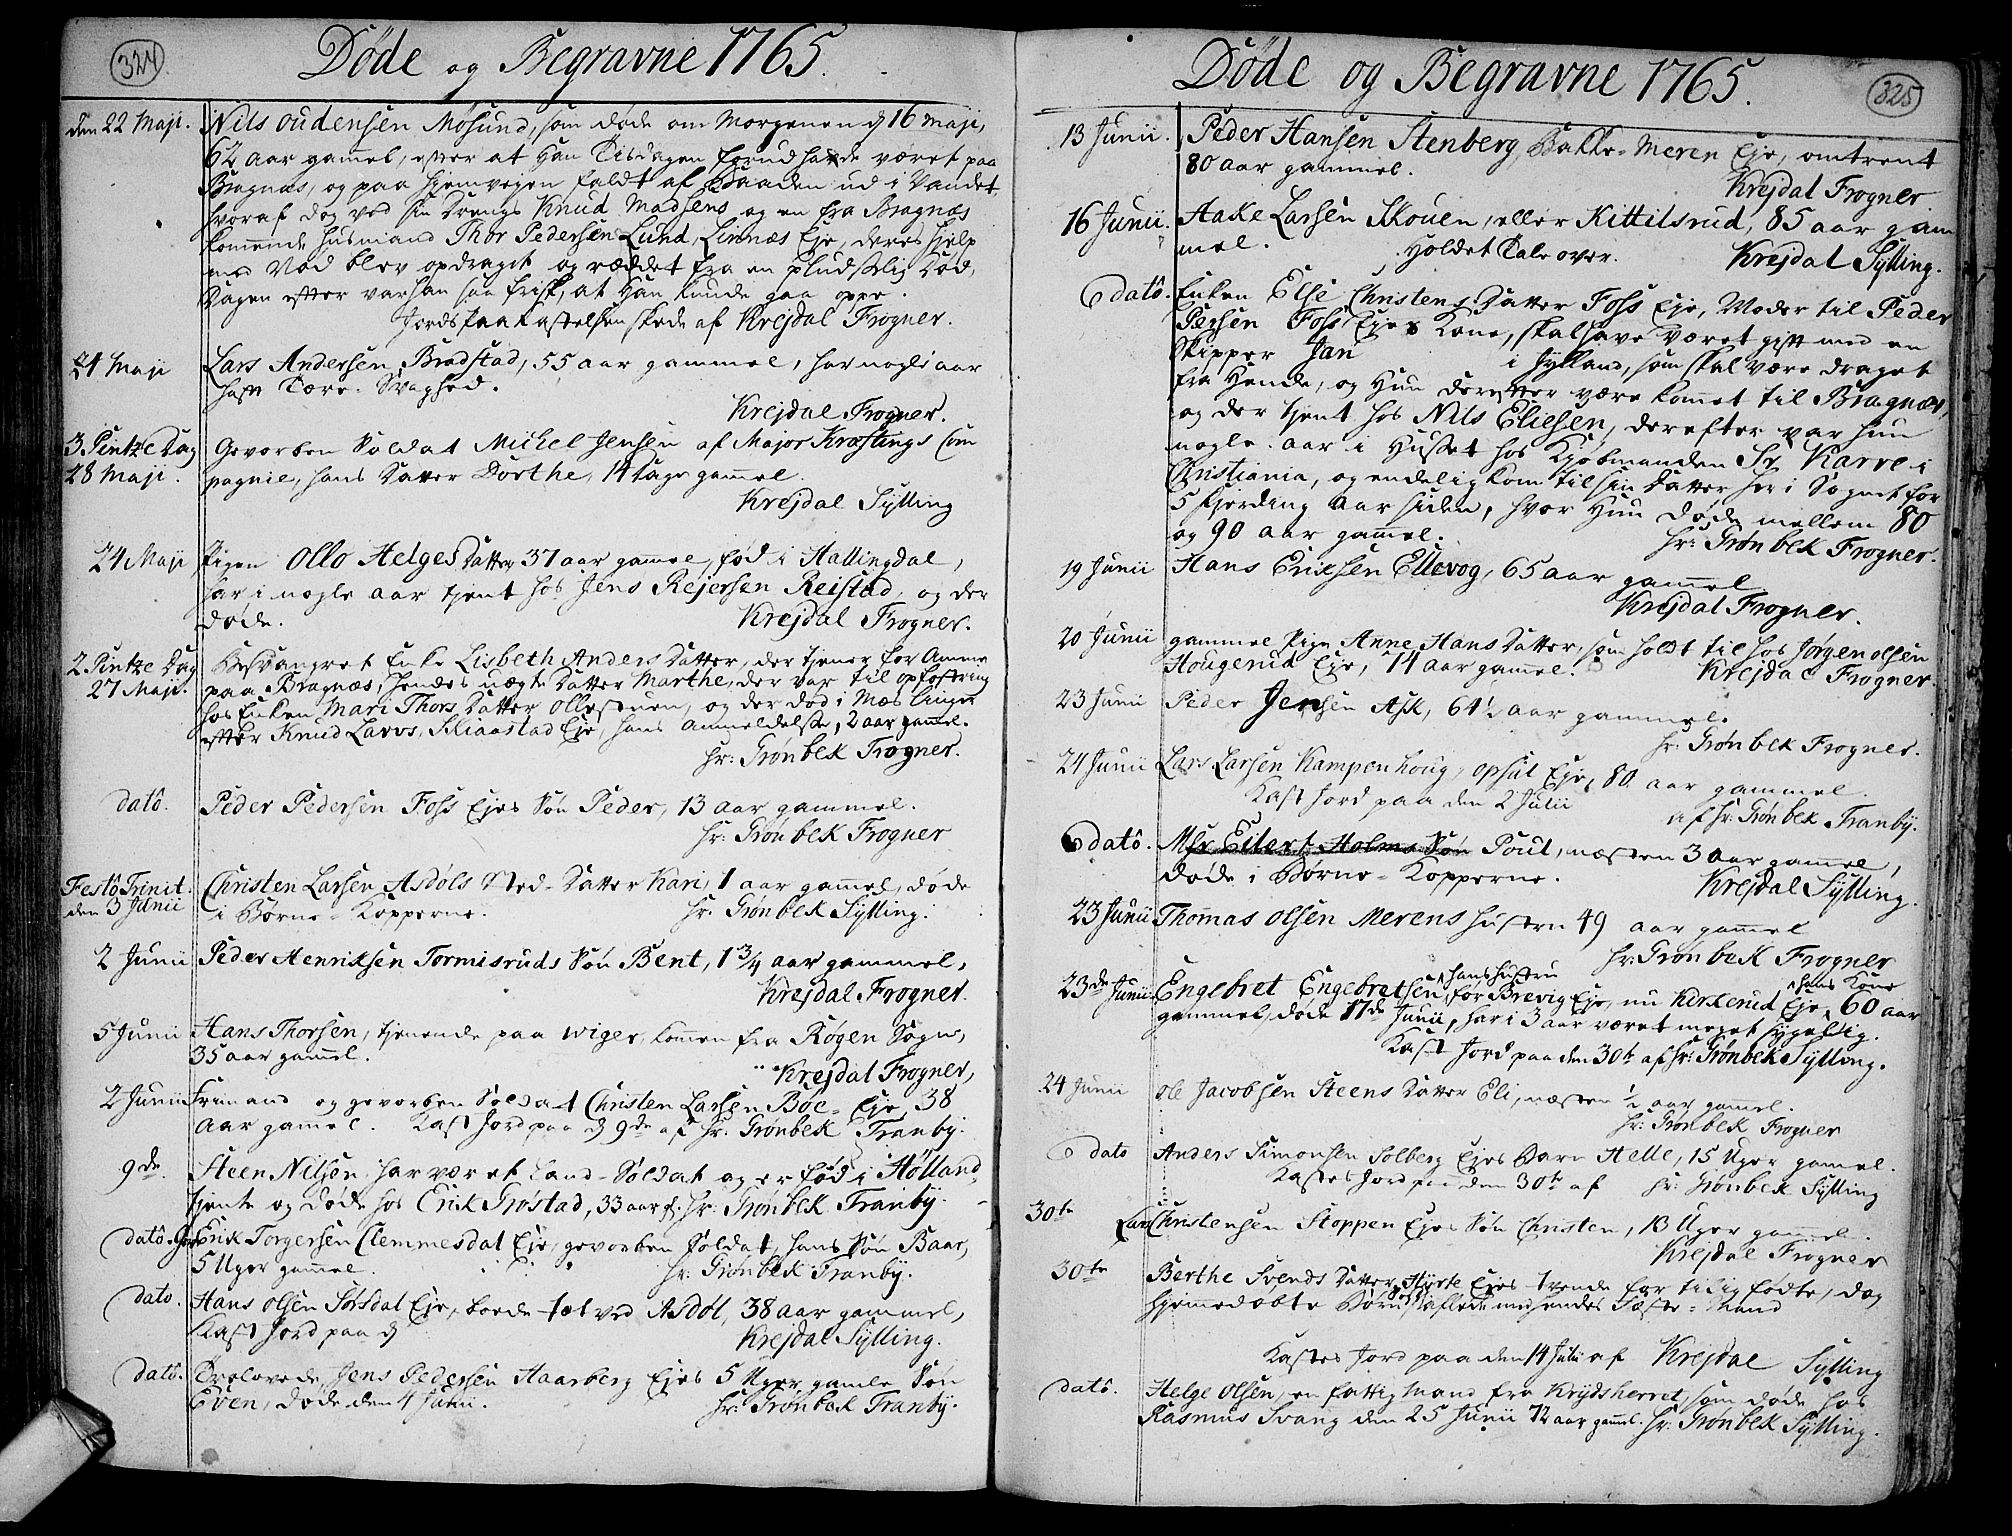 324
Døde og Begravne 1765.
den 22 Maji. Nils Oudensen Mösund, som døde om Morgenen d 16 Maji,
62 aar gammel, efter at Han Tisdagen forud hafde været paa
Bragnæs, og paa hjemvejen faldt af Baaden ud i Vandet,
hvoraf dog ved sin Drengs Knud Madsens og en fra Bragnæs
komende Husmand Thor Pedersen Lund, Linnæs Eje, deres hielp
med Vad blev opdraget og reddet fra en pludselig Död,
Dagen efter var han saa frisk, at Han kunde gaa oppe.
Jords Paakastelsen skede af Krejdal Frogner.
24 Maji Lars Andersen Bradstad, 55 aar gammel, har nogle aar
haft Tære-Svaghed.
Krejdal Frogner.
3 Pintze Dag Gevorben Soldat Michel Jensen af Major Kræftings Com
28 Maji. pagnie, hans Datter Dorthe, 14 Dage gamel.
Krejdal Sylling
24 Maji Pigen Ollo Helges Datter 37 aar gamel, fød i Hallingdal,
har i nogle aar tjent hos Jens Rejersen Reistad, og der
døde.
Krejdal Frogner.
2 Pintze Dag Besvangret Enke Lisbeth Anders Datter, der tjener for Amme
27 Maji. paa Bragnæs, hendes uægte Datter Marthe, der var til opfostring
hos Enken Mari Thors Datter Ollestuen, og der död i Mæslinger
efter Knud Larss. Skiaastad Eje, hans Anmeldelse, 2 aar gamel.
hr: Grønbek Frogner.
datô. Peder Pedersen Foss Ejes Søn Peder, 13 aar gammel.
hr: Grønbek Frogner
Festô Trinit. Christen Larsen Asdöls Sted-Datter Kari, 1 aar gamel, døde
den 3 Junii i Børne-Kopperne.
hr: Grønbek Sylling.
2 Junii Peder Henriksen Tormisruds Søn Bent, 1 3/4 aar gammel,
Krejdal Frogner.
5 Junii Hans Thorsen, tjenende paa Wiger, kommen fra Røgen Sogn,
35 aar gammel.
Krejdal Frogner,
2 Junii Frimand og gevorben Soldat Christen Larsen Böe-Eje, 38
aar gamel. Kast Jord paa d 9de af hr. Grønbek Tranby.
9de. Steen Nilsen, har været Land-Soldat og er fød i Hölland,
tjente og døde hos Erik Grøstad, 33 aar g. hr: Grønbek Tranby.
datô. Erik Torgersen Clemmesdal Eje, gevorben Soldat, hans Søn Baar,
5 Uger gammel.
hr. Grønbek Tranby.
dato. Hans Olsen Sörsdal Eje, boede tæt ved Asdöl, 38 aar gammel,
Kast Jord paa d
Krejdal Sylling.
datô. Trolovede Jens Pedersen Haarberg Ejes 5 Uger gamle Søn
Even, døde den 4 Junii.
hr: Grønbek Tranby.
325
Døde og Begravne 1765.
13 Junii. Peder Hansen Stenberg, Bakke-Meren Eje, omtrent
80 aar gammel.
Krejdal Frogner
16 Junii. Aake Larsen Skouen, eller Kittilsrud, 85 aar gam
mel. Holdet Tale over. Krejdal Sylling.
datô. Enken Else Christens Datter Foss Eje, Moder til Peder
Persen Foss Ejes Kone, skal have været gift med en
Skipper Jan i Jylland, som skal være draget
fra Hende, og Hun derefter være komet til Bragnæs,
og der tjent hos Nils Eliesen, derefter var hun
nogle aar i Huset hos Kjøbmanden Sr Karre i
Christiania, og endelig kom til sin Datter her i Sognet for
5 fjerding Aar siden, hvor Hun døde mellem 80
og 90 aar gamel.
hr: Grønbek Frogner.
19 Junii Hans Eriksen Ellevog, 65 aar gammel
Krejdal Frogner.
20 Junii gammel Pige Anne Hans Datter, som holdt til hos Jørgen Olsen
Hougerud Eje, 74 aar gamel. Krejdal Frogner.
23 Junii Peder Jensen Ask, 64 1/2 aar gammel.
hr: Grønbek Frogner.
24 Junii Lars Larsen Kampenhoug, Opsal Eje, 80 aar gammel.
Kast Jord paa den 2 Julii
af hr: Grønbek Tranby.
datô. Msr Eilert Holms Søn Poul, næsten 3 aar gamel,
døde i Børne-Kopperne.
Krejdal Sylling.
23 Junii Thommas Olsen Merens Hustru 49 aar gamel
hr: Grønbek Frogner
hans hustru hans Kone
23de Junii Engebret Engebretsen, før Brevig Eje, nu Kirkerud Eje, 60 aar
gammel, døde 17de Junii, har i 3 aar været meget sygelig.
Kast Jord paa den 30te af hr: Grønbek Sylling.
24 Junii Ole Jacobsen Steens Datter Eli, næsten 1/2 aar gamel.
hr: Grønbek Frogner
dato Anders Simonsen Solberg Ejes Barn Helle, 15 Uger gamel.
Kastes Jord paa den 30te af hr: Grønbek Sylling
30te Lars Christensen Stoppen Ejes Søn Christen, 13 Uger gammel.
Krejdal Frogner
30te Berthe Svends Datter Eje tvende for tilig fødte, dog
hjemedøbte Børn aflede med hendes Fæste-Mand
Kastes Jord paa den 14 Julii af Krejdal Sylling
datô. Helge Olsen, en fattig Mand fra Krydsherret, som døde hos
Rasmus Svang den 25 Junii 72 aar gamel. hr: Grønbek Sylling.